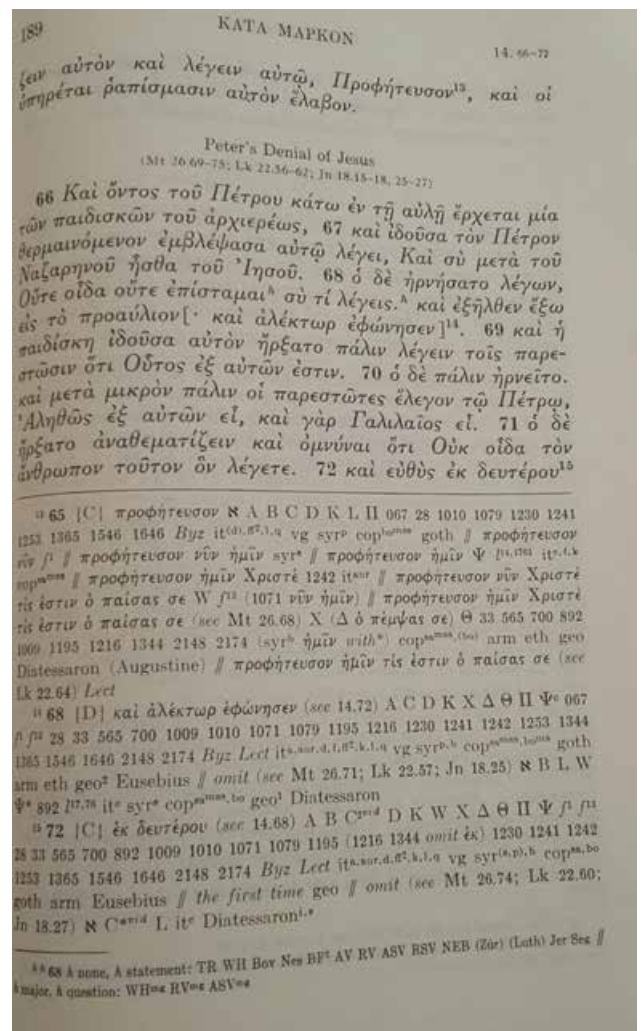 189 ΚΑΤΑ ΜΑΡΚΟΝ 14. 66–72
ζειν αὐτὸν καὶ λέγειν αὐτῷ, Προφήτευσον¹³, καὶ οἱ
ὑπηρέται ῥαπίσμασιν αὐτὸν ἔλαβον.
Peter's Denial of Jesus
(Mt 26.69–75; Lk 22.56–62; Jn 18.15–18, 25–27)
66 Καὶ ὄντος τοῦ Πέτρου κάτω ἐν τῇ αὐλῇ ἔρχεται μία
τῶν παιδισκῶν τοῦ ἀρχιερέως, 67 καὶ ἰδοῦσα τὸν Πέτρον
θερμαινόμενον ἐμβλέψασα αὐτῷ λέγει, Καὶ σὺ μετὰ τοῦ
Ναζαρηνοῦ ἦσθα τοῦ Ἰησοῦ. 68 ὁ δὲ ἠρνήσατο λέγων,
Οὔτε οἶδα οὔτε ἐπίσταμαιʰ σὺ τί λέγεις.ʰ καὶ ἐξῆλθεν ἔξω
εἰς τὸ προαύλιον[· καὶ ἀλέκτωρ ἐφώνησεν]¹⁴. 69 καὶ ἡ
παιδίσκη ἰδοῦσα αὐτὸν ἤρξατο πάλιν λέγειν τοῖς παρε-
στῶσιν ὅτι Οὗτος ἐξ αὐτῶν ἐστιν. 70 ὁ δὲ πάλιν ἠρνεῖτο.
καὶ μετὰ μικρὸν πάλιν οἱ παρεστῶτες ἔλεγον τῷ Πέτρῳ,
Ἀληθῶς ἐξ αὐτῶν εἶ, καὶ γὰρ Γαλιλαῖος εἶ. 71 ὁ δὲ
ἤρξατο ἀναθεματίζειν καὶ ὀμνύναι ὅτι Οὐκ οἶδα τὸν
ἄνθρωπον τοῦτον ὃν λέγετε. 72 καὶ εὐθὺς ἐκ δευτέρου¹⁵
¹³ 65 {C} προφήτευσον א A B C D K L Π 067 28 1010 1079 1230 1241
1253 1365 1546 1646 Byz it⁽ᵈ⁾,ff²,l,q vg syrᵖ copᵇᵒᵐˢˢ goth // προφήτευσον
νῦν f¹ // προφήτευσον νῦν ἡμῖν syrˢ // προφήτευσον ἡμῖν Ψ itᶜ,f,k
copˢᵃᵐˢˢ // προφήτευσον ἡμῖν Χριστέ 1242 itᵃᵘʳ // προφήτευσον νῦν Χριστέ
τίς ἐστιν ὁ παίσας σε W f¹³ (1071 νῦν ἡμῖν) // προφήτευσον ἡμῖν Χριστέ
τίς ἐστιν ὁ παίσας σε (see Mt 26.68) X (Δ ὁ πέμψας σε) Θ 33 565 700 892
1009 1195 1216 1344 2148 2174 (syrʰ ἡμῖν with*) copˢᵃᵐˢˢ,⁽ᵇᵒ⁾ arm eth geo
Diatessaron (Augustine) // προφήτευσον ἡμῖν τίς ἐστιν ὁ παίσας σε (see
Lk 22.64) Lect
¹⁴ 68 {D} καὶ ἀλέκτωρ ἐφώνησεν (see 14.72) A C D K X Δ Θ Π Ψᶜ 067
f¹ f¹³ 28 33 565 700 1009 1010 1071 1079 1195 1216 1230 1241 1242 1253 1344
1365 1546 1646 2148 2174 Byz Lect itᵃ,ᵃᵘʳ,ᵈ,f,ff²,k,l,q vg syrᵖ,ʰ copˢᵃᵐˢˢ,ᵇᵒᵐˢˢ goth
arm eth geo² Eusebius // omit (see Mt 26.71; Lk 22.57; Jn 18.25) א B L W
Ψ* 892 l¹⁷,⁷⁶ itᶜ syrˢ copˢᵃᵐˢˢ,ᵇᵒ geo¹ Diatessaron
¹⁵ 72 {C} ἐκ δευτέρου (see 14.68) A B C²ᵛⁱᵈ D K W X Δ Θ Π Ψ f¹ f¹³
28 33 565 700 892 1009 1010 1071 1079 1195 (1216 1344 omit ἐκ) 1230 1241 1242
1253 1365 1546 1646 2148 2174 Byz Lect itᵃ,ᵃᵘʳ,ᵈ,ff²,k,l,q vg syr⁽ˢ,ᵖ⁾,ʰ copˢᵃ,ᵇᵒ
goth arm Eusebius // the first time geo // omit (see Mt 26.74; Lk 22.60;
Jn 18.27) א C*ᵛⁱᵈ L itᶜ Diatessaronⁱ,*
ʰ ʰ 68 h none, h statement: TR WH Bov Nes BF² AV RV ASV RSV NEB (Zür) (Luth) Jer Seg //
h major, h question: WHᵐᵍ RVᵐᵍ ASVᵐᵍ